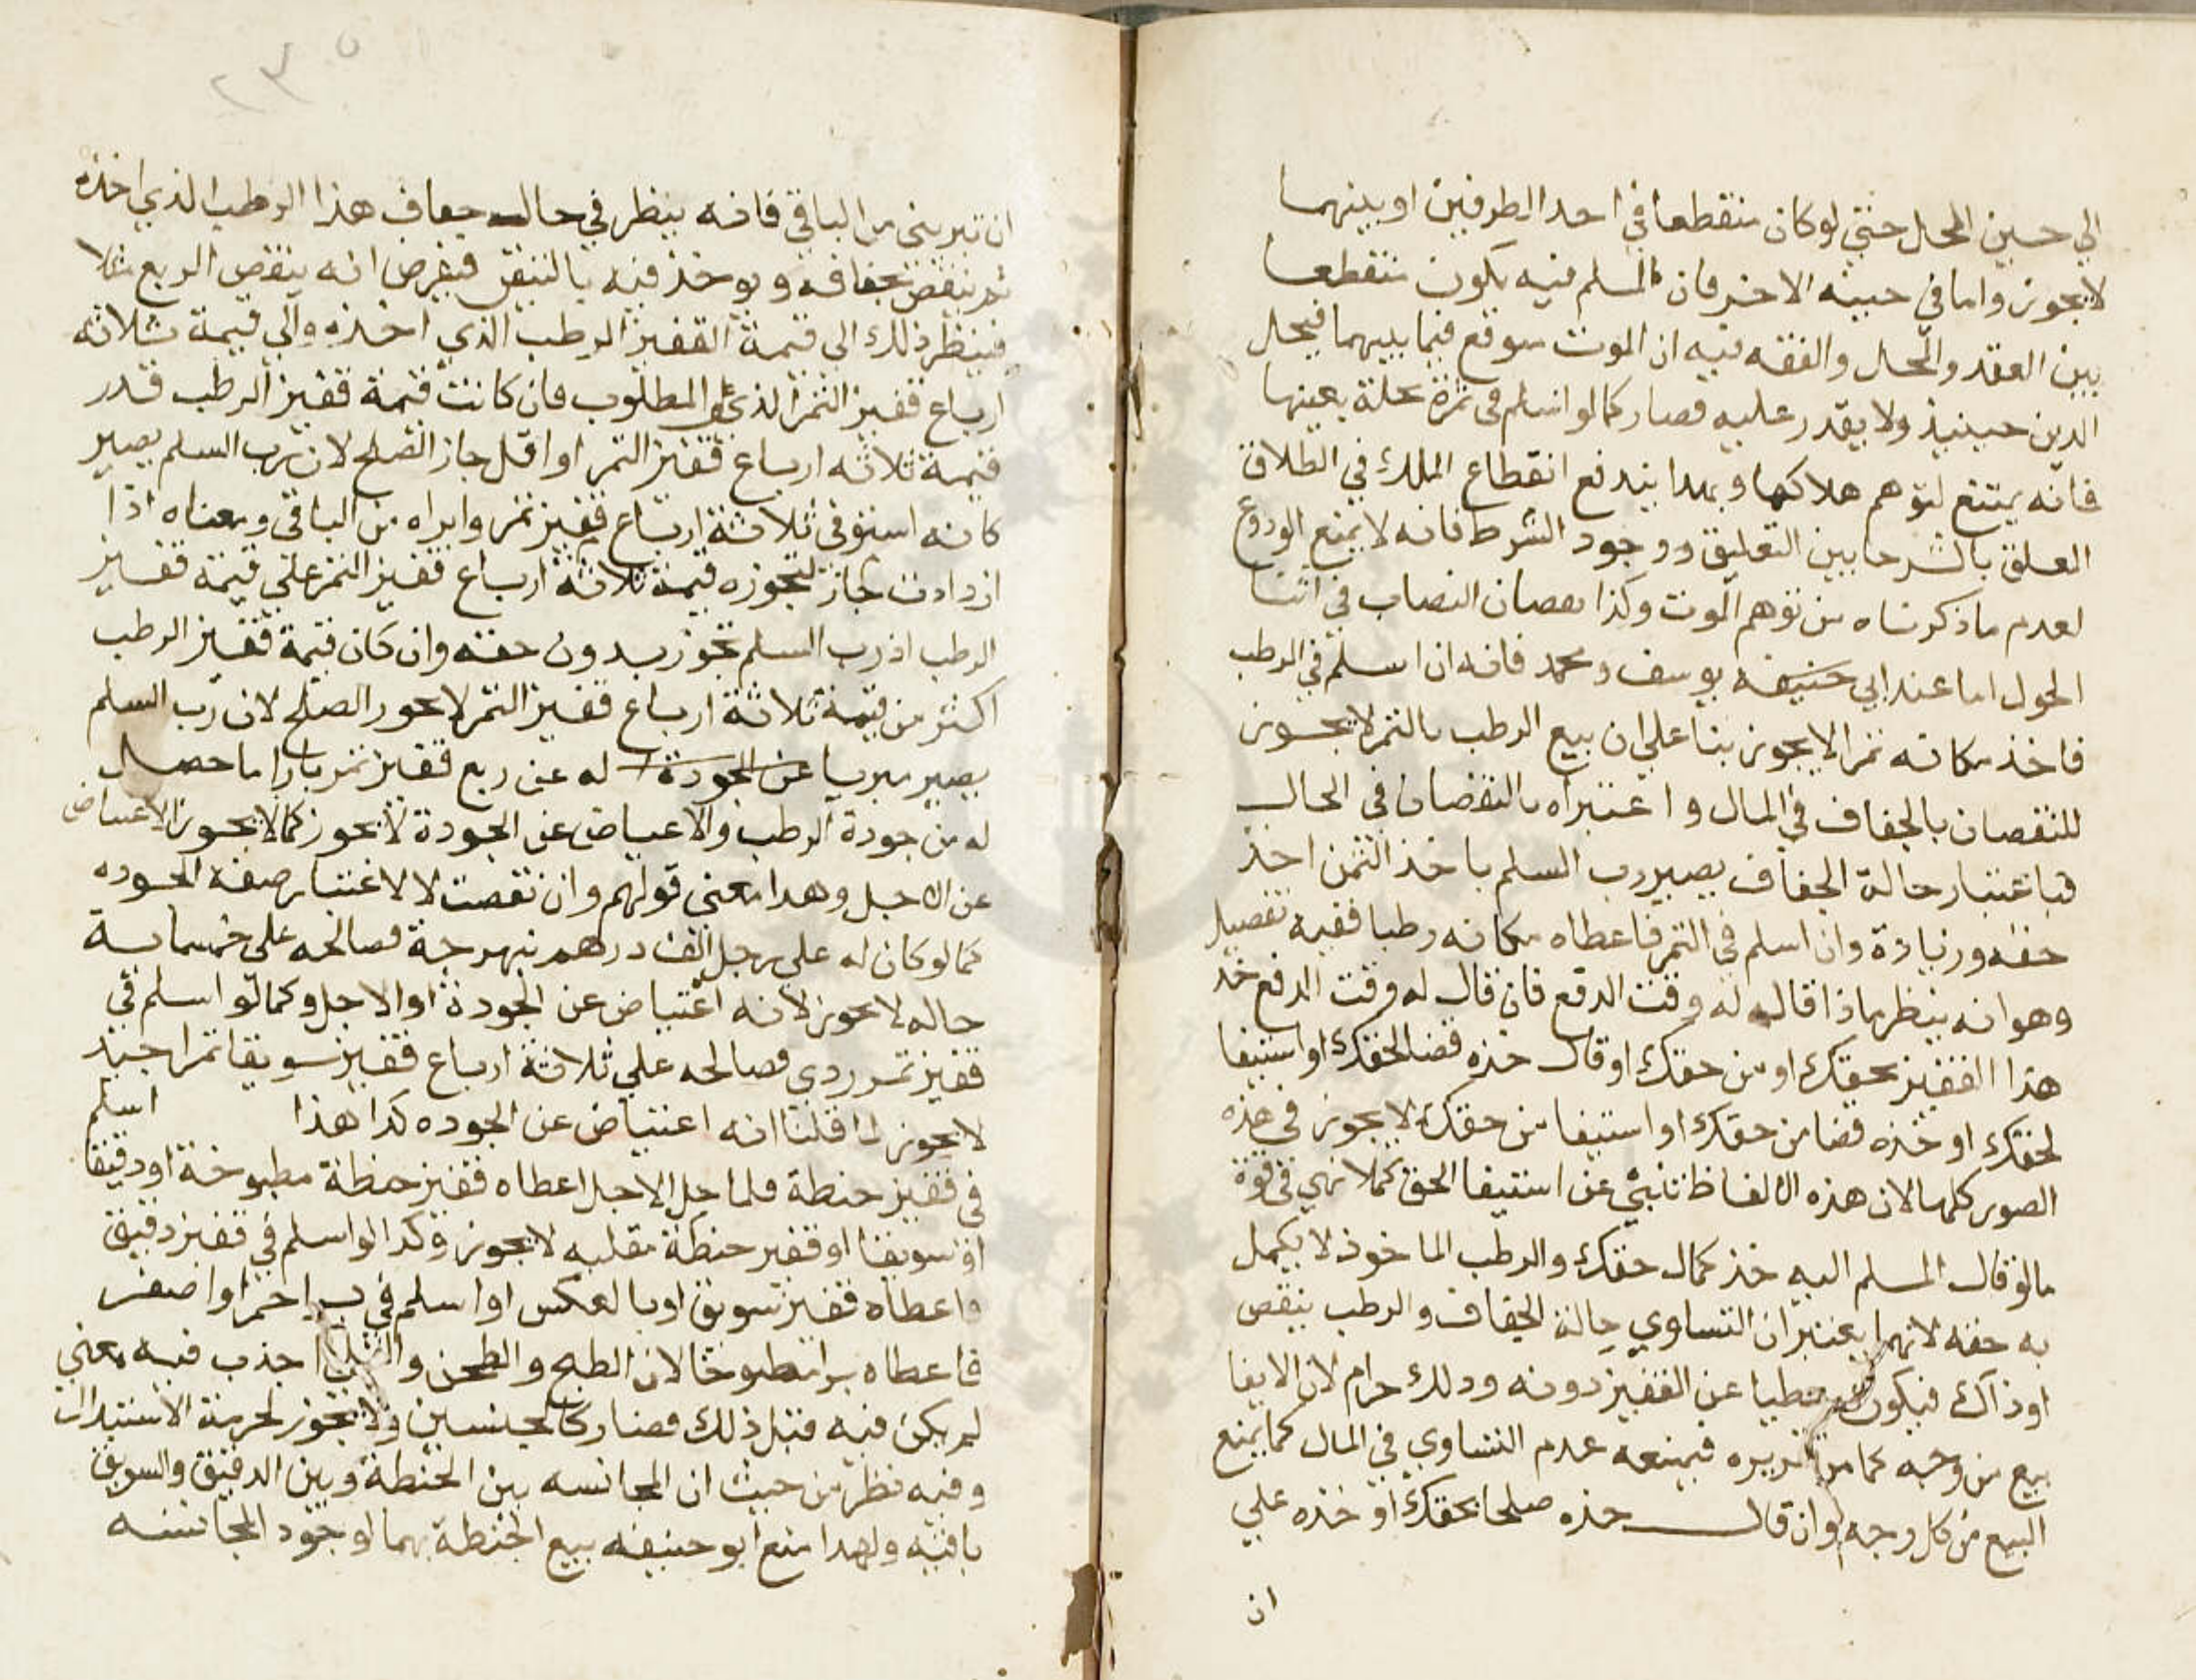 الي حين المحل حتي لو كان منقطعا في احد الطرفين او بينهما
لا يجوز واما في حيينه الاخر فان المسلم فيه يكون منقطعا
بين العقد والمحل والفقه فيه ان الموت متوقع فيما بينهما فيحل
الدين حينيذ ولا يقدر عليه فصار كما لو اسلم في ثمرة نخلة بعينها
فانه يمتنع لتوهم هلاكها وبهدا يندفع انقطاع الملك في الطلاق
المعلق بالشرط ما بين التعليق ووجود الشرط فانه لا يمنع الوقوع
لعدم ما ذكرناه من توهم الموت وكذا نقصان النصاب في اثنا
الحول اما عند ابي حنيفه يوسف ومحمد فانه ان اسلم في الرطب
فاخذ مكانه تمرا لا يجوز بنا علي ان بيع الرطب بالتمر لا يجوز
للنقصان بالجفاف في المال واعتبراه بالنقصان في الحال
فباعتبار حالة الجفاف يصير رب السلم باخذ الثمن اخذ
حقه وزيادة وان اسلم في التمر فاعطاه مكانه رطبا ففيه تفصيل
وهو انه ينظر ماذا قال له وقت الدفع فان قال له وقت الدفع خذ
هذا القفيز بحقك او من حقك او قال خذه قضا لحقك او استيفا
لحقك او خذه قضا من حقك او استيفا من حقك لا يجوز في هذه
الصور كلها لان هذه الالفاظ تنبئ عن استيفا الحق كملا فهي في قوة
ما لو قال المسلم اليه خذ كمال حقك والرطب الماخوذ لا يكمل
به حقه لانهما يعتبران التساوي حالة الجفاف والرطب ينقص
اوذاك فيكون معطيا عن القفيز دونه ودلك حرام لان الايفا
بيع من وجه كما مر تقريره فيمنعه عدم التساوي في المال كما يمنع
البيع من كل وجه وان قال خذه صلحا بحقك او خذه علي
ان
ان تبريني من الباقي فانه ينظر في حال جفاف هذا الرطب الذي اخذه
ثم ينقص بجفافه ويوخذ فيه بالتيقن فيفرض انه ينقص الربع مثلا
فينظر ذلك الي قيمة القفيز الرطب الذي اخذه والي قيمة ثلاثه
ارباع قفيز التمر الذي هو المطلوب فان كانت قيمة قفيز الرطب قدر
قيمة ثلاثه ارباع قفيز التمر او اقل جاز الصلح لان رب السلم يصير
كانه استوفي ثلاثة ارباع قفيز تمر وابراه من الباقي ومعناه اذا
ازدادت جاز لتجوزه قيمة ثلاثة ارباع قفيز التمر علي قيمة قفيز
الرطب اذ رب السلم تجوز بدون حقه وان كان قيمة قفيز الرطب
اكثر من قيمة ثلاثة ارباع قفيز التمر لا يجوز الصلح لان رب السلم
يصير مبريا عن الجودة له عن ربع قفيز تمر بازا ما حصل
له من جودة الرطب والاعتياض عن الجودة لا يجوز كما لا يجوز الاعتياض
عن الاجل وهدا معني قولهم وان نقصت لا لاعتبار صفة الجوده
كما لو كان له علي رجل الف درهم نبهرجة فصالحه علي خمسمائة
حاله لا يجوز لانه اعتياض عن الجودة او الاجل وكما لو اسلم في
قفيز تمر ردي فصالحه علي ثلاثة ارباع قفيز سويقا تمرا جيد
لا يجوز لما قلنا انه اعتياض عن الجوده كدا هذا اسلم
في قفيز حنطة فلما حل الاجل اعطاه قفيز حنطة مطبوخة او دقيقا
او سويقا او قفيز حنطة مقليه لا يجوز وكدا لو اسلم في قفيز دقيق
فاعطاه قفيز سويق او بالعكس او اسلم في بسر احمر او اصفر
فاعطاه برا مطبوخا لان الطبخ والطحن والقلي احذب فيه معني
لم يكن فيه قبل ذلك فصار كالجنسين ولا يجوز لحرمة الاستبدال
وفيه نظر من حيث ان المجانسه بين الحنطة وبين الدقيق والسويق
باقيه ولهدا منع ابو حنيفه بيع الحنطة بهما لوجود المجانسه